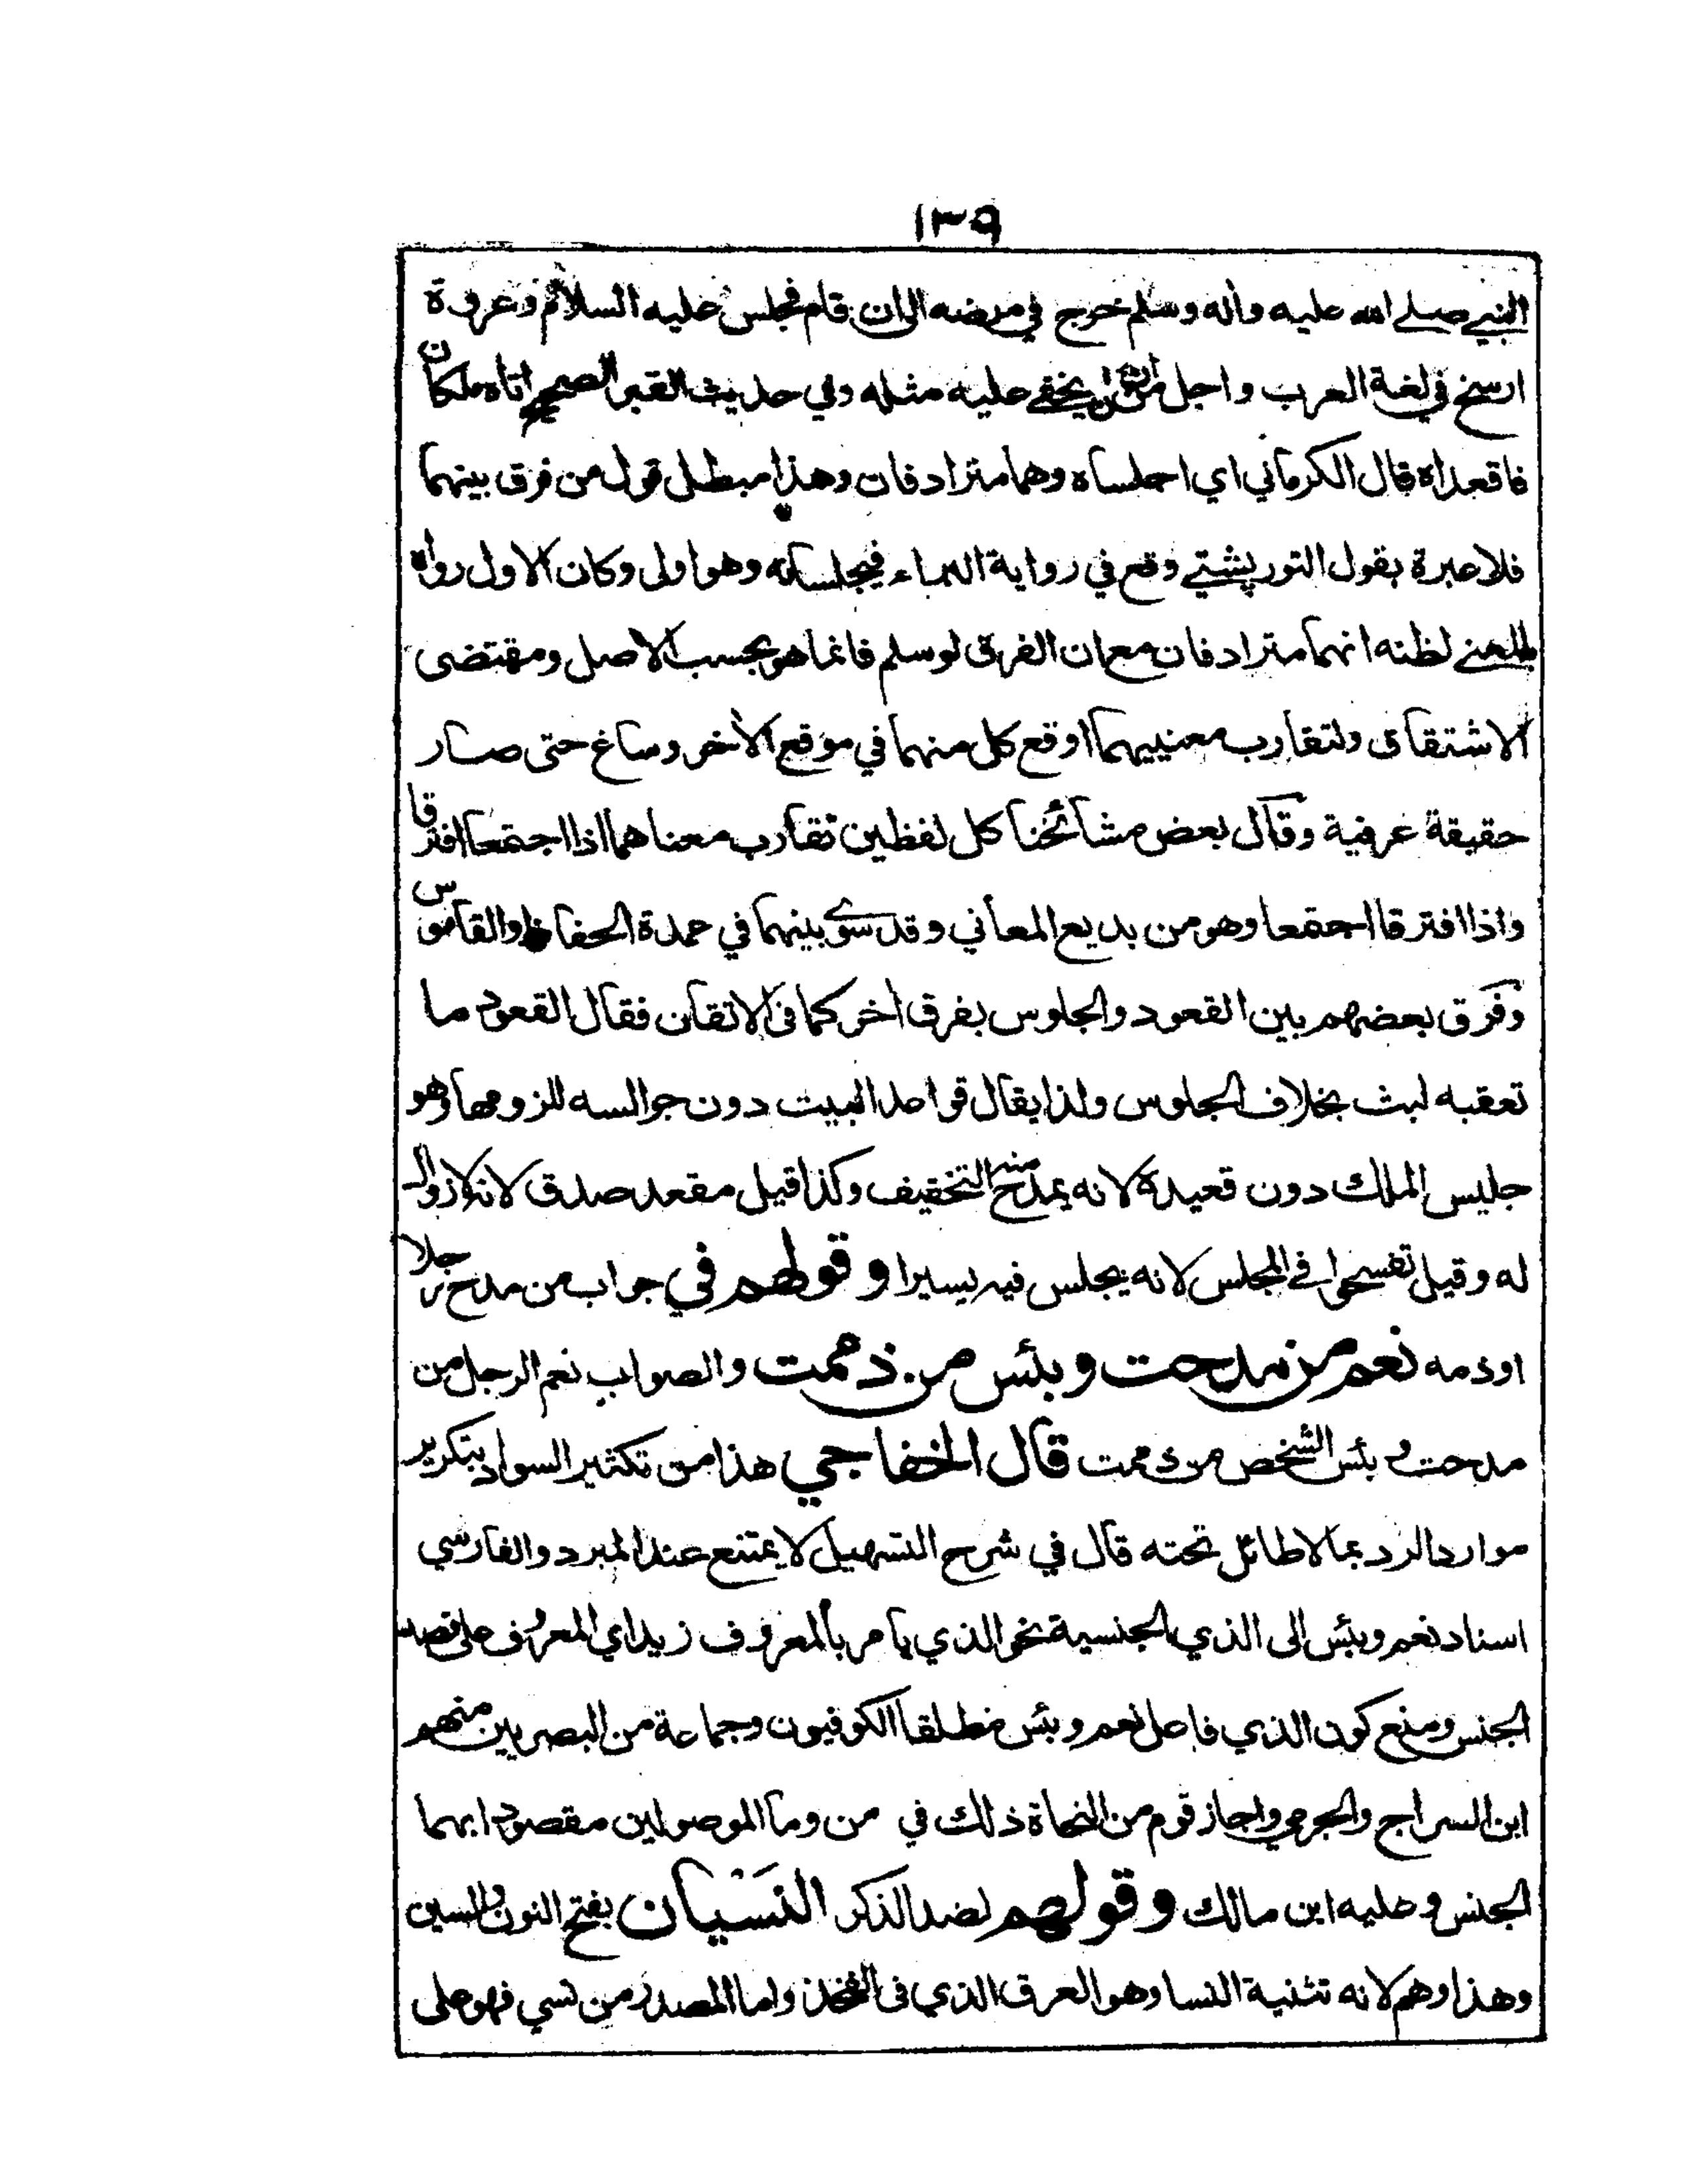 ١٣٩
النبي صلے الله عليه وأله وسلم خرج في مرضه الى ان قام فجلس عليه السلام وعروة
ارسخ في لغة العرب واجل من ان يخفے عليه مثله وفي حديث القبر الصحيح اتاه ملكان
فاقعداه قال الكرماني اي اجلساه وهما مترادفان وهذا مبطل قول من فرق بينهما
فلا عبرة بقول التورپشتے وقع في رواية البراء فيجلسانه وهو اولى وكان الاول رواه
بالمعنے لظنه انهما مترادفان مع ان الفرق لو سلم فانما هو بحسب الاصل ومقتضى
الاشتقاق ولتقارب معنييهما اوقع كل منهما في موقع الأخر وساغ حتى صار
حقيقة عرفية وقال بعض مشائخنا كل لفظين تقارب معناهما اذا اجتمعا افترقا
واذا افترقا اجتمعا وهو من بديع المعاني وقد سوے بينهما في عمدة الحفاظ والقاموس
وفرق بعضهم بين القعود والجلوس بفرق أخر كما فى الاتقان فقال القعود ما
تعقبه لبث بخلاف الجلوس ولذا يقال قواعد البيت دون جوالسه للزومها وهو
جليس الملك دون قعيده لانه يمدح منه التخفيف وكذا قيل مقعد صدق لانه لا زوال
له وقيل تفسحوا فے المجلس لانه يجلس فيه يسيرا وقولهم في جراب من مدح رجلا
اوذمه نعم من مدحت وبئس من ذممت والصواب نعم الرجل من
مدحت وبئس الشخص من ذممت قال الخفاجي هذا من تكثير السواد بتكرير
موارد الرد بما لا طائل تحته قال في شرح التسهيل لا يمتنع عند المبرد والفارسي
اسناد نعم وبئس الى الذي الجنسية نحو الذي يامر بالمعروف زيد اي المعروف على قصد
الجنس ومنع كون الذي فاعل نعم وبئس مطلقا الكوفيون وجماعة من البصريين منهم
ابن السراج والجرمي واجاز قوم من النحاة ذلك في من وما الموصولين مقصودا بهما
الجنس وعليه ابن مالك وقولهم لضد الذكر النَسَيان بفتح النون والسين
وهذا وهم لانه تثنية النسا وهو العرق الذي فى الفخذ واما المصدر من نسي فهو على